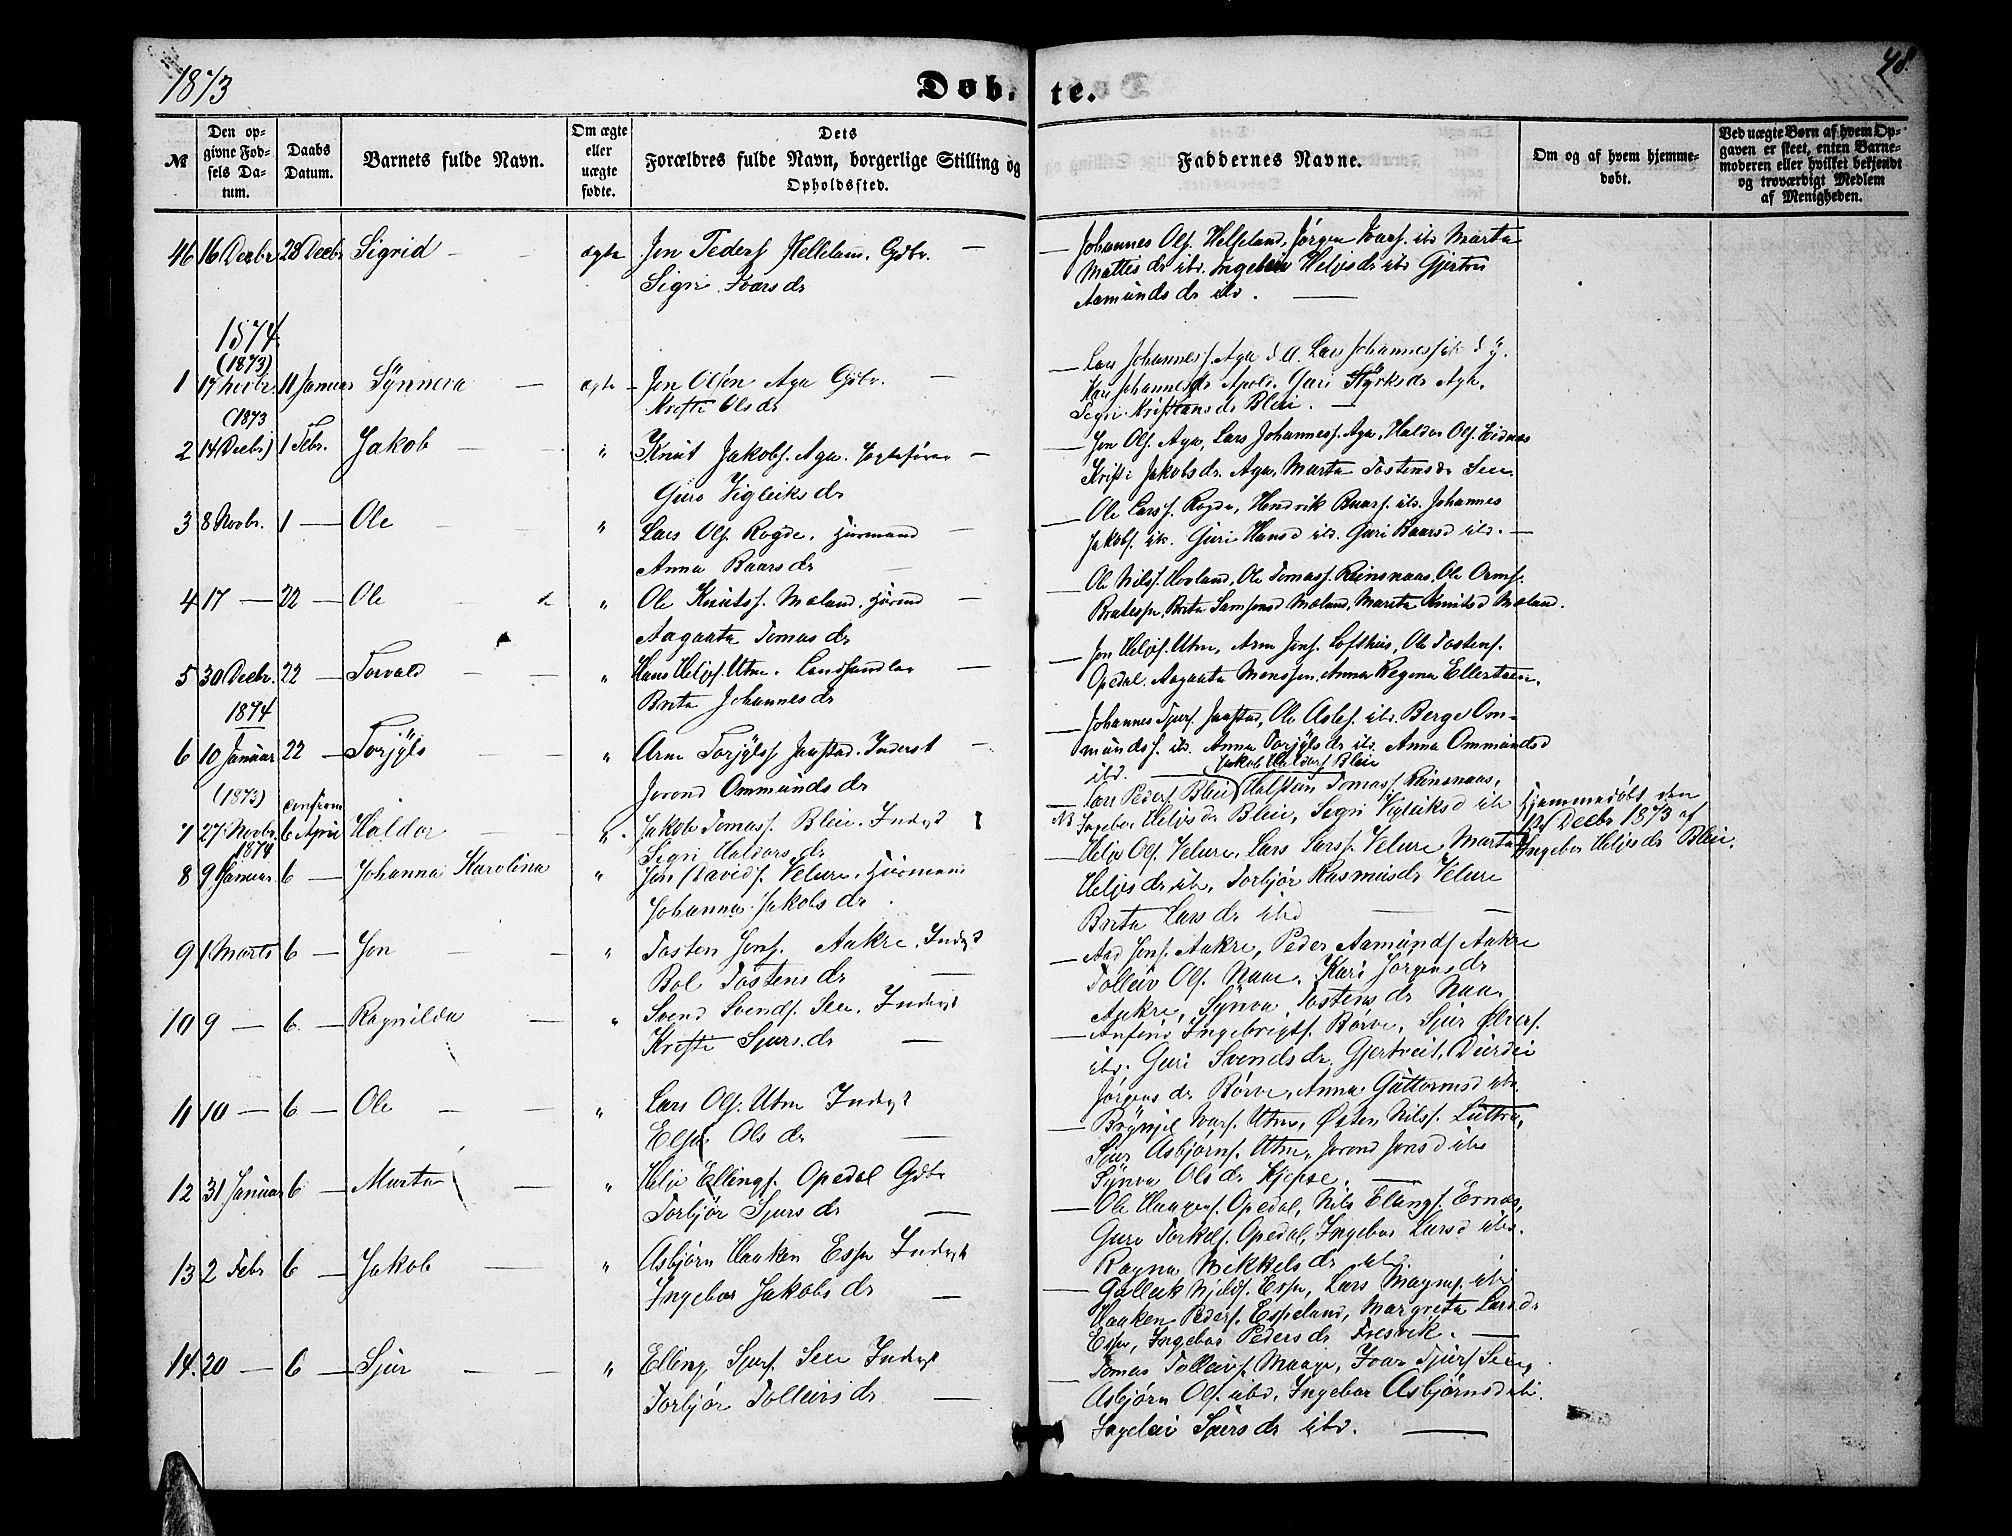 1873
Døb-
te.
48.
№
Den op-
givne Fød-
sels Da-
tum.
Daabs
Datum.
Barnets fulde Navn.
Om ægte
eller
uægte
fødte.
Dets
Forældres fulde Navn, borgerlige Stilling og
Opholdssted.
Faddernes Navne.
Om og af hvem hjemme-
døbt.
Ved uægte Børn af hvem Op-
gaven er skeet, enten Barne-
moderen eller hvilket bekjendt
og troværdigt Medlem
af Menigheden.
46 16 Decbr 28 Decbr Sigrid — ægte Jon Peders Helleland. Gdbr. —
Sigri Ivarsdr
— Johannes Ols. Helleland, Jørgen Ivars. ibd Marta
Mattisdr ibd. Ingebor Heljesdr ibd Gjertru
Aamundsdr ibd. —
1874
(1873)
1 17 Novbr. 11 Januar Synneva — ægte — Jon Olsen Aga Gdbr. —
Kristi Olsdr
— Lars Johanness. Aga d. æ. Lars Johanness ib d. y.
Kari Johannesdr Apold. Guri Styrksdr Aga.
Segri Kristiansdr Bleie. —
(1873
2 14 Decbr) 1 Febr. Jakob — " Knut Jakobs. Aga. Jagtefører —
Guro Vigleiksdr
— Jon Ols. Aga, Lars Johanness. Aga, Haldor Ols. Eidnes
Kristi Jakobsdr. Aga, Marta Tostensdr See.
3 8 Novbr. 1 — Ole — " Lars Ols. Rogde. Huusmand —
Anna Baarsdr
— Ole Larss. Rogde, Hendrik Baars. ibd. Johannes
Jakobs. ib. Guri Hansd ibd. Guri Baarsd ibd. —
4 17 — 22 — Ole — " Ole Knuts. Mæland. Huusmd —
Aagaata Tomasdr
— Ole Nils. Hovland, Ole Tomass. Reinsnaas, Ole Orms.
Bratespe, Brita Samsonsd Mæland, Marita Knutsd Mæland.
5 30 Decbr. 22 — Torvald — " Hans Heljes. Utne. Landhandler —
Brita Johannesdr
— Jon Heljes. Utne, Arne Jons. Lofthus, Ole Tostens.
Opedal. Aagaata Monssen, Anna Regina Ellertsen.
1874
6 10 Januar 22 — Torjyls — " Arne Torjyls. Jaastad. Inderst —
Jorond Ommundsdr
— Johannes Sjurs. Jaastad, Ole Asles. ibd. Berge Om-
munds. ib. Anna Torjylsdr ibd. Anna Ommundsd
ibd. —
(1873) confirm
7 27 Novbr. 6 April Haldor — ". Jakob Tomass. Bleie. Inderst
Segri Haldorsdr
Jakob Haldors Bleie
— Lars Peders Bleie Halstein Tomass. Reinsnaas,
NB Ingebor Heljesdr Bleie, Segri Vigleiksd ib
Hjemmedøbt den
12 Decbr 1873 af
Ingebor Heljesdr Bleie.
1874
8 9 Januar 6 — Johanna Karolina " Jon Davids. Velure. Huusmand
Johanna Jakobsdr.
— Helje Ols. Velure, Lars Larss. Velure, Marta
Heljesdr ib, Torbjør Rasmusdr Velure
Brita Larsdr ibd —
9 1 Marts 6 — Jon — " Tosten Jons. Aakre. Inderst
Bol Tostensdr —
— Aad Jons. Aakre, Peder Aamunds Aakre
Tolleiv Ols. Naae. Kari Jørgensdr
Aakre, Synva Tostensdr Naa.
10 9 — 6 — Ragnilda — " Svend Svends. See. Inderst
Kristi Sjursdr —
— Anfind Ingebrigts. Børve, Sjur Ølvers.
ibd. Guri Svendsdr Gjertveit, Durdei
Jørgensdr Børve, Anna Guttormsd ibd.
11 10 — 6 — Ole — " Lars Ols. Utne Inderst
Elsa Olsdr —
— Brynjel Ivars. Utne, Østen Nils. Luttro,
Sjur Asbjørns. Utne, Jorond Jonsd ibd
Synva Olsdr Kjepse. —
12 31 Januar 6 — Marta — " Helje Ellings. Opedal Gdbr
Torbjør Sjursdr —
— Ole Haagens. Opedal, Nils Elangs. Ernes,
Guro Torkels. Opedal, Ingebor Larsd ibd.
Ragna Mekkelsdr ibd.
13 2 Febr 6 — Jakob — " Asbjørn Haaken Espe Inderst
Ingebor Jakobsdr —
— Gulleik Njelds. Espe, Lars Magnes. ibd
Haaken Peders. Espeland, Margreta Larsdr
Espe, Ingebor Pedersdr Fresvik. —
14. 20 — 6 — Sjur — " Elling Sjurs. See Inderst
Torbjør Tolleivsdr —
— Tomas Tolleivs. Maage, Ivar Sjurs See,
Asbjørn Ols. ibd, Ingebor Asbjørnsd ib.
Ingeleiv Sjursdr ibd. —